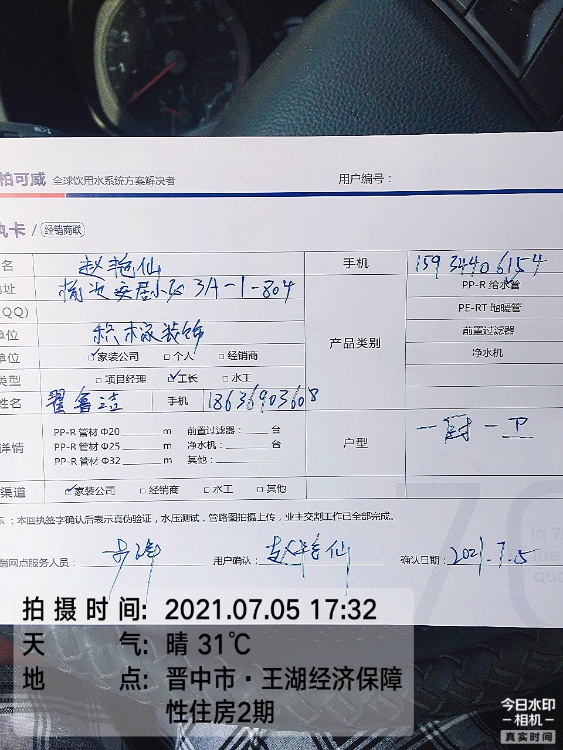 柏可威 全球饮用水系统方案解决者 用户编号：
执卡 / 经销商联
名 赵艳仙 手机 15934406154
地址 榆次安居小区 3A-1-804 PP-R 给水管
(QQ) PE-RT 地暖管
单位 积木家装饰 产品类别 前置过滤器
单位 ☑家装公司 □个人 □经销商 净水机
类型 □项目经理 ☑工长 □水工
姓名 手机 18636903608
详情 PP-R 管材 Φ20 m 前置过滤器： 台 户型 一厨一卫
PP-R 管材 Φ25 m 净水机： 台
PP-R 管材 Φ32 m 其他：
渠道 ☑家装公司 □经销商 □水工 □其他
：本回执签字确认后表示真伪验证，水压测试，管路图拍摄上传，业主交割工作已全部完成。
销网点服务人员： 用户确认： 赵艳仙 确认日期： 2021.7.5
In 7
the
qua
拍摄时间: 2021.07.05 17:32
天 气: 晴 31℃
地 点: 晋中市·王湖经济保障
性住房2期
今日水印
相机
真实时间